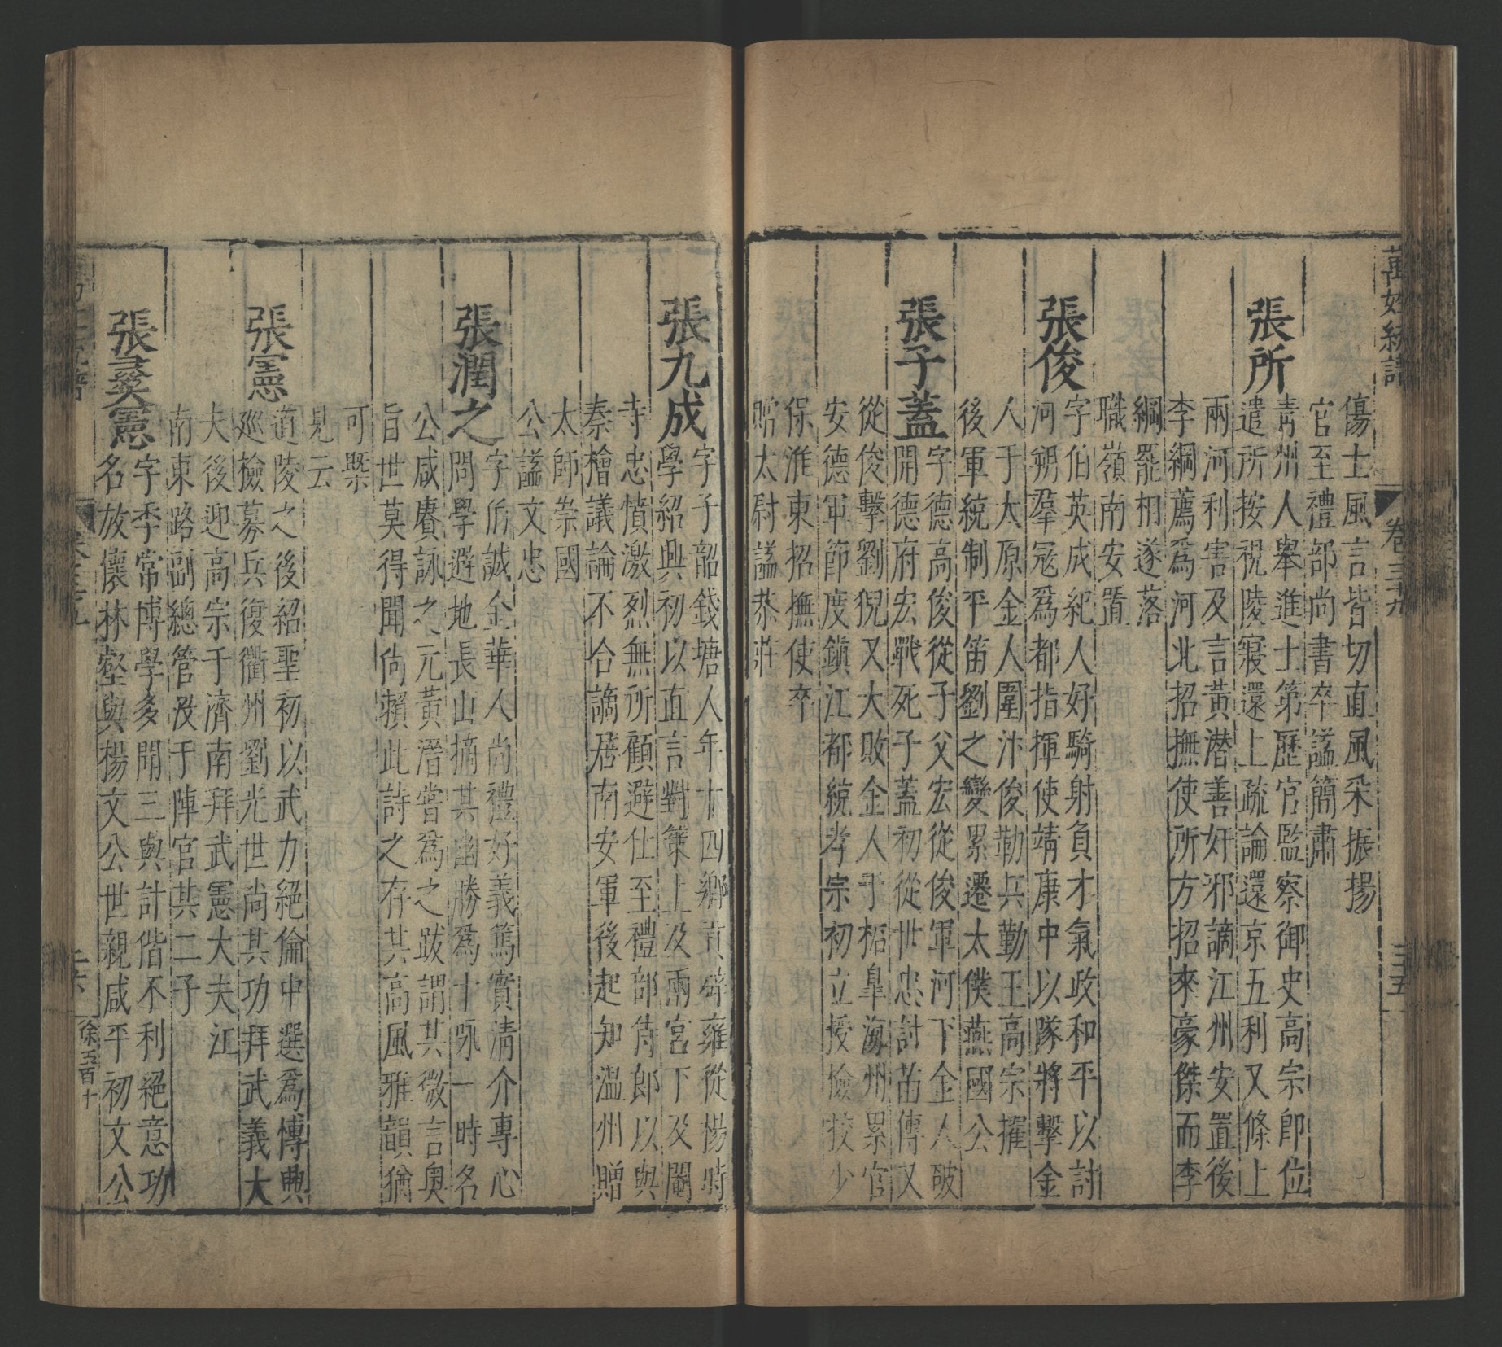 萬姓統譜
卷三十九
三五
傷士風言皆切直風采振揚
官至禮部尚書卒謚簡肅
張所
青州人舉進士第歷官監察御史高宗即位
遣所按視陵寢還上疏論還京五利又條上
兩河利害及言黃潛善奸邪謫江州安置後
李綱薦爲河北招撫使所方招來豪傑而李
綱罷相遂落
職嶺南安置
張俊
字伯英成紀人好騎射負才氣政和平以討
河朔羣寇爲都指揮使靖康中以隊將擊金
人于太原金人圍汴俊勒兵勤王高宗擢
後軍統制平苗劉之變累遷太僕燕國公
張子蓋
字德高俊從子父宏從俊軍河下金人破
開德府宏戰死子蓋初從世忠討苗傅又
從俊擊劉猊又大敗金人于柘臯海州累官
安德軍節度鎮江都統孝宗初立授檢挍少
保淮東招撫使卒
贈太尉謚恭莊
張九成
字子韶錢塘人年十四鄉貢辟雍從楊時
學紹興初以直言對策上及兩宮下及閹
寺忠憤激烈無所顧避仕至禮部侍郎以與
秦檜議論不合謫居南安軍後起知溫州贈
太師崇國
公謚文忠
張潤之
字伯誠金華人尚禮好義篤實清介專心
問學避地長山摘其幽勝爲十咏一時名
公咸賡詠之元黃溍嘗爲之跋謂其微言奧
旨世莫得聞尚賴此詩之存其高風雅韻猶
可槩
見云
張憲
道陵之後紹聖初以武力絕倫中選爲博興
廵檢募兵復衢州劉光世尚其功拜武義大
夫後迎高宗于濟南拜武憲大夫江
南東路副總管歿于陣官其二子
張㚇憲
字季常博學多聞三與計偕不利絕意功
名放懷林壑與楊文公世親咸平初文公
二六
徐五百十